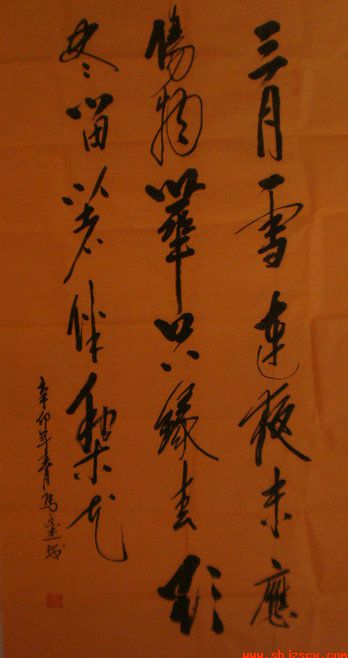 三月雪連夜未應
傷物華只緣春欲
尽留著伴梨花
辛卯年
www.shjzscx.com